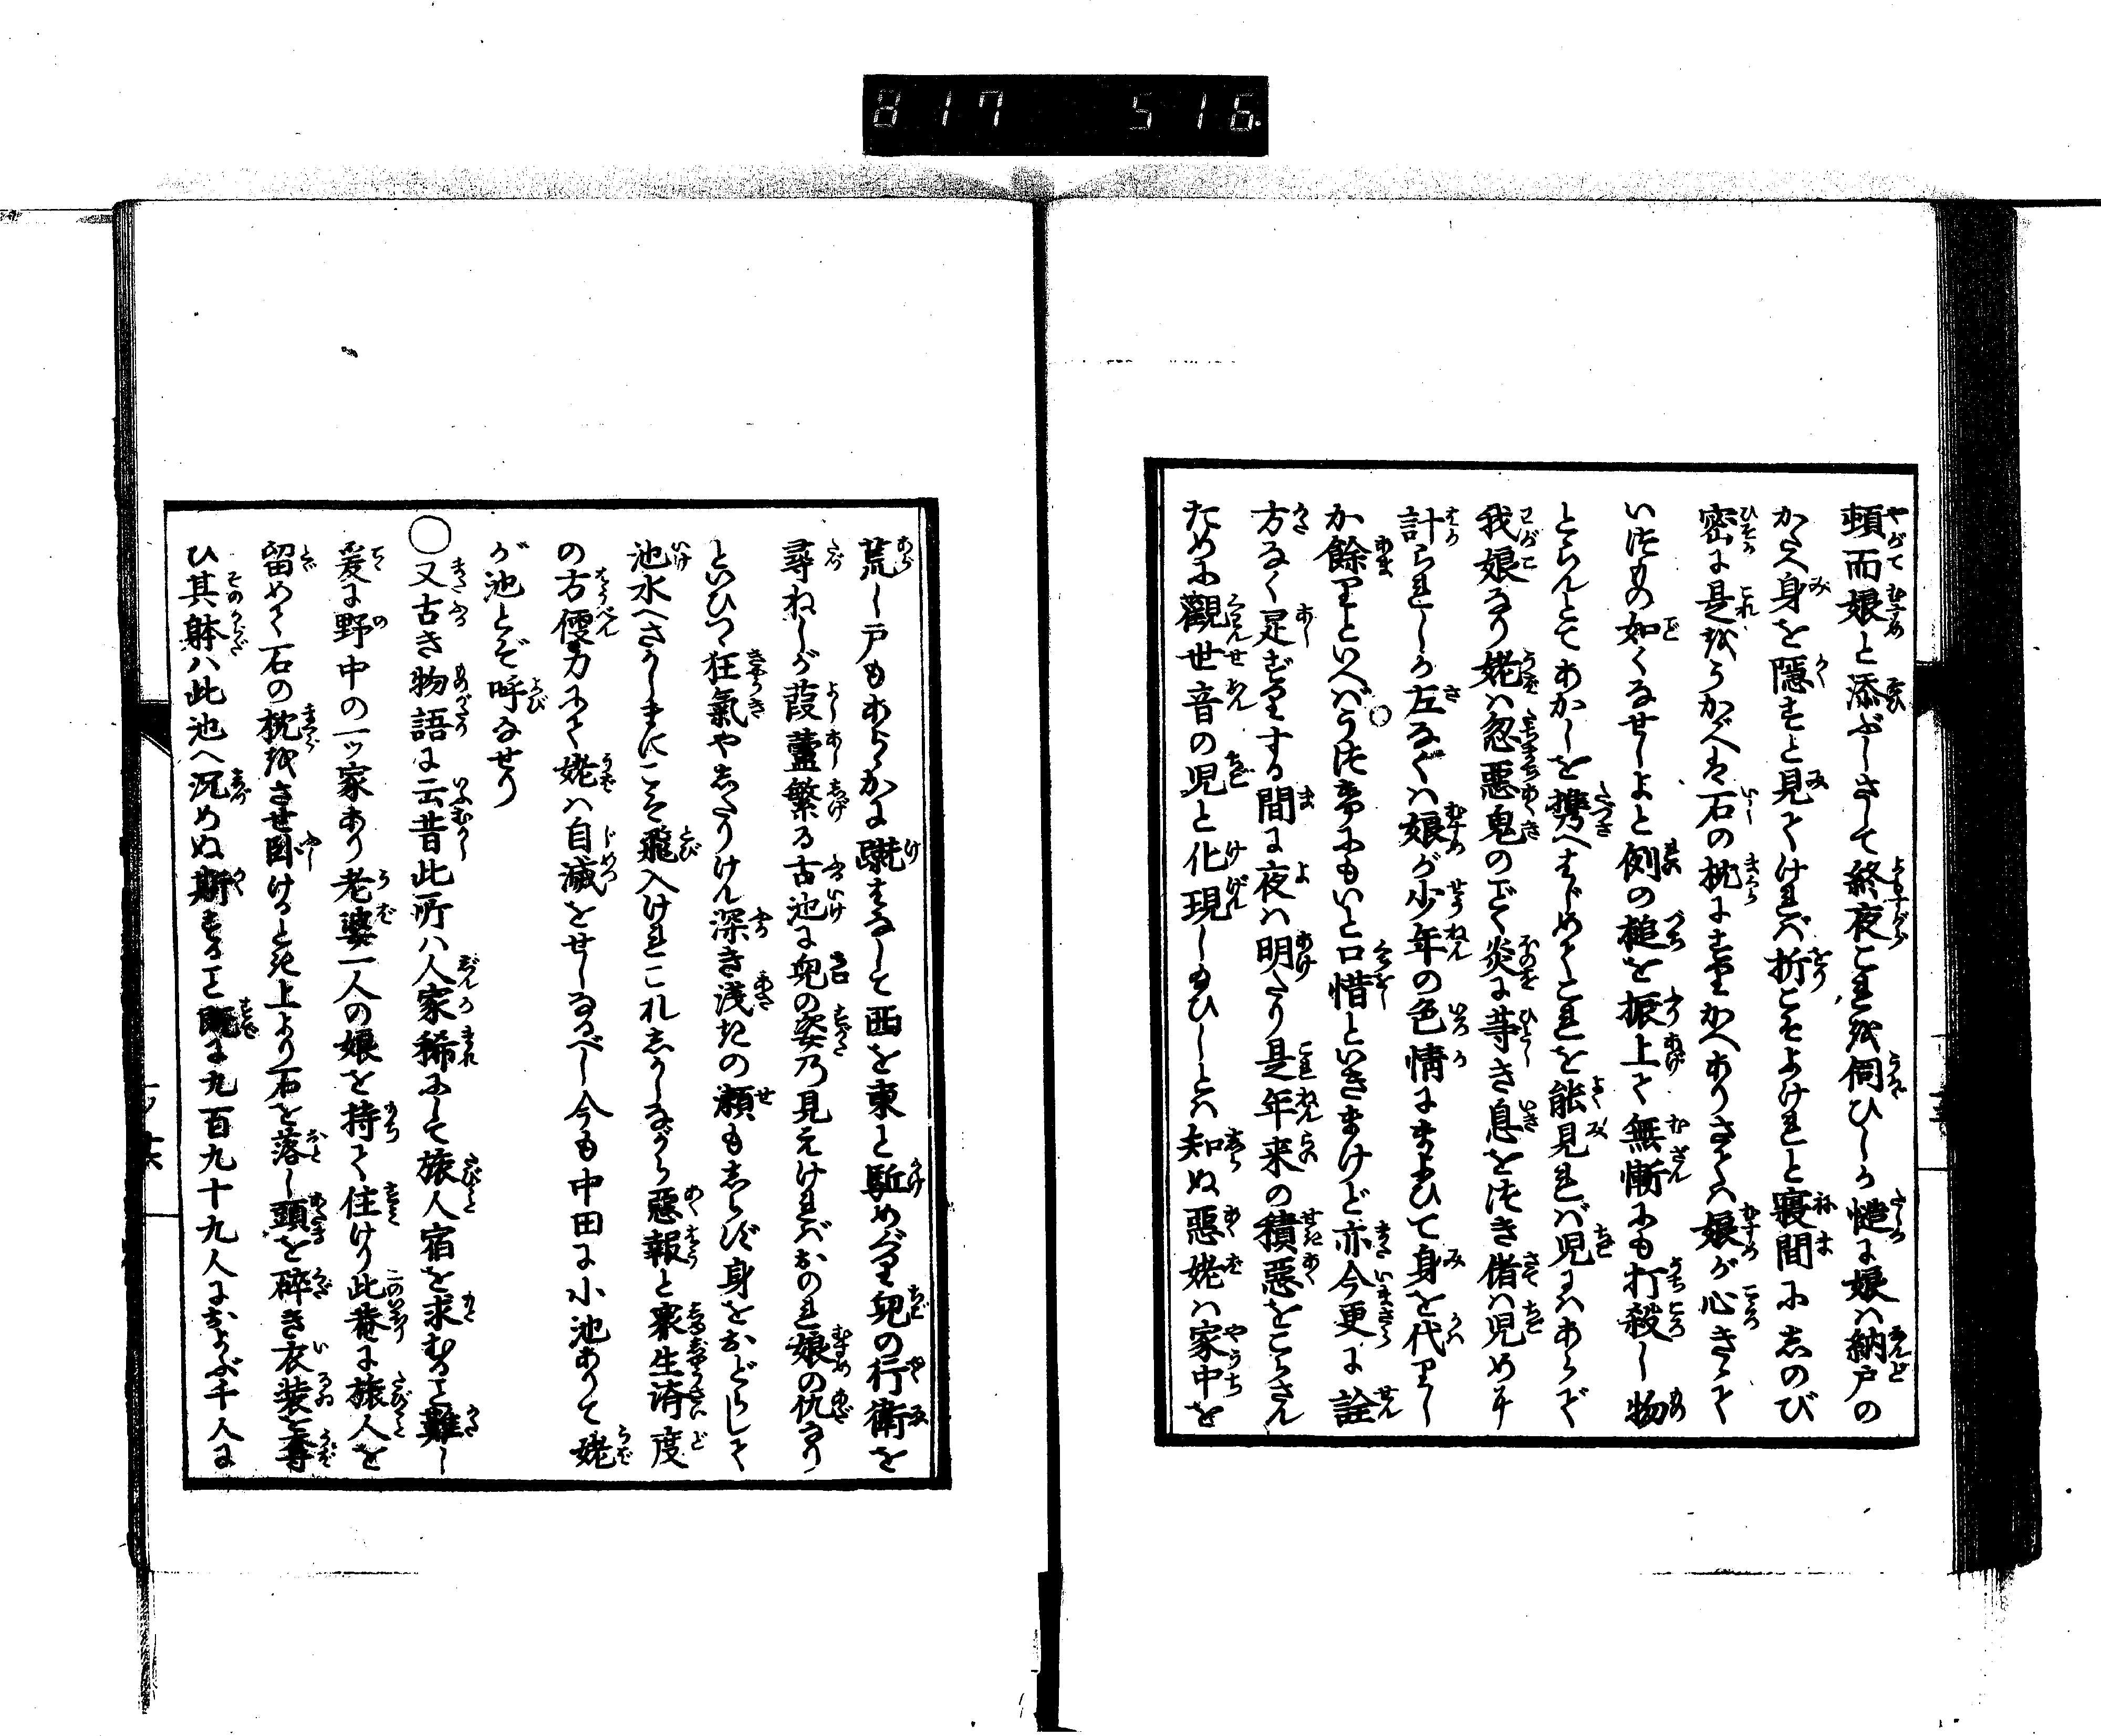 817 516
頓而娘と添ぶしさして終夜これを伺ひしが慥に娘は納戸の
かたへ身を隠すと見てければ折こそよけれと寝間にしのび
密に是をうかゞへば石の枕にまくらかへありさては娘が心きゝて
いつもの如くなせしよと例の槌を振上て無慚にも打殺し物
とらんとてあかしを携へはじめてこれを能見れば児にはあらで
我娘なり姥は忽悪鬼のごく炎に等き息をつき偖は児めに
計られしか左なくは娘が少年の色情にまよひて身を代りし
か餘りといへばうつ夢にもいと口惜といきまけど亦今更に詮
方なく足ずりする間に夜は明たり是年来の積悪をこらさん
ために観世音の児と化現し給ひしとは知ぬ悪姥は家中を
荒し戸もあらかに蹴はなして西を東と駈めぐり児の行衛を
尋ねしが葭蘆繁る古池に児の姿乃見えければおのれ娘の仇なり
といひつゝ狂氣やしたりけん深き浅きの瀬もしらず身をおどらして
池水へさかしまにこそ飛入けれこれしかしながら悪報と衆生済度
の方便力にて姥は自滅をせしなるべし今も中田に小池ありて姥
が池とぞ呼なせり
○又古き物語に云昔此所は人家稀にして旅人宿を求むるに難し
爰に野中の一ッ家あり老婆一人の娘を持て住けり此菴に旅人を
留めて石の枕をさせ臥けるとき上より石を落し頭を砕き衣装を奪
ひ其躰は此池へ沉めぬ斯すること既に九百九十九人におよぶ千人に